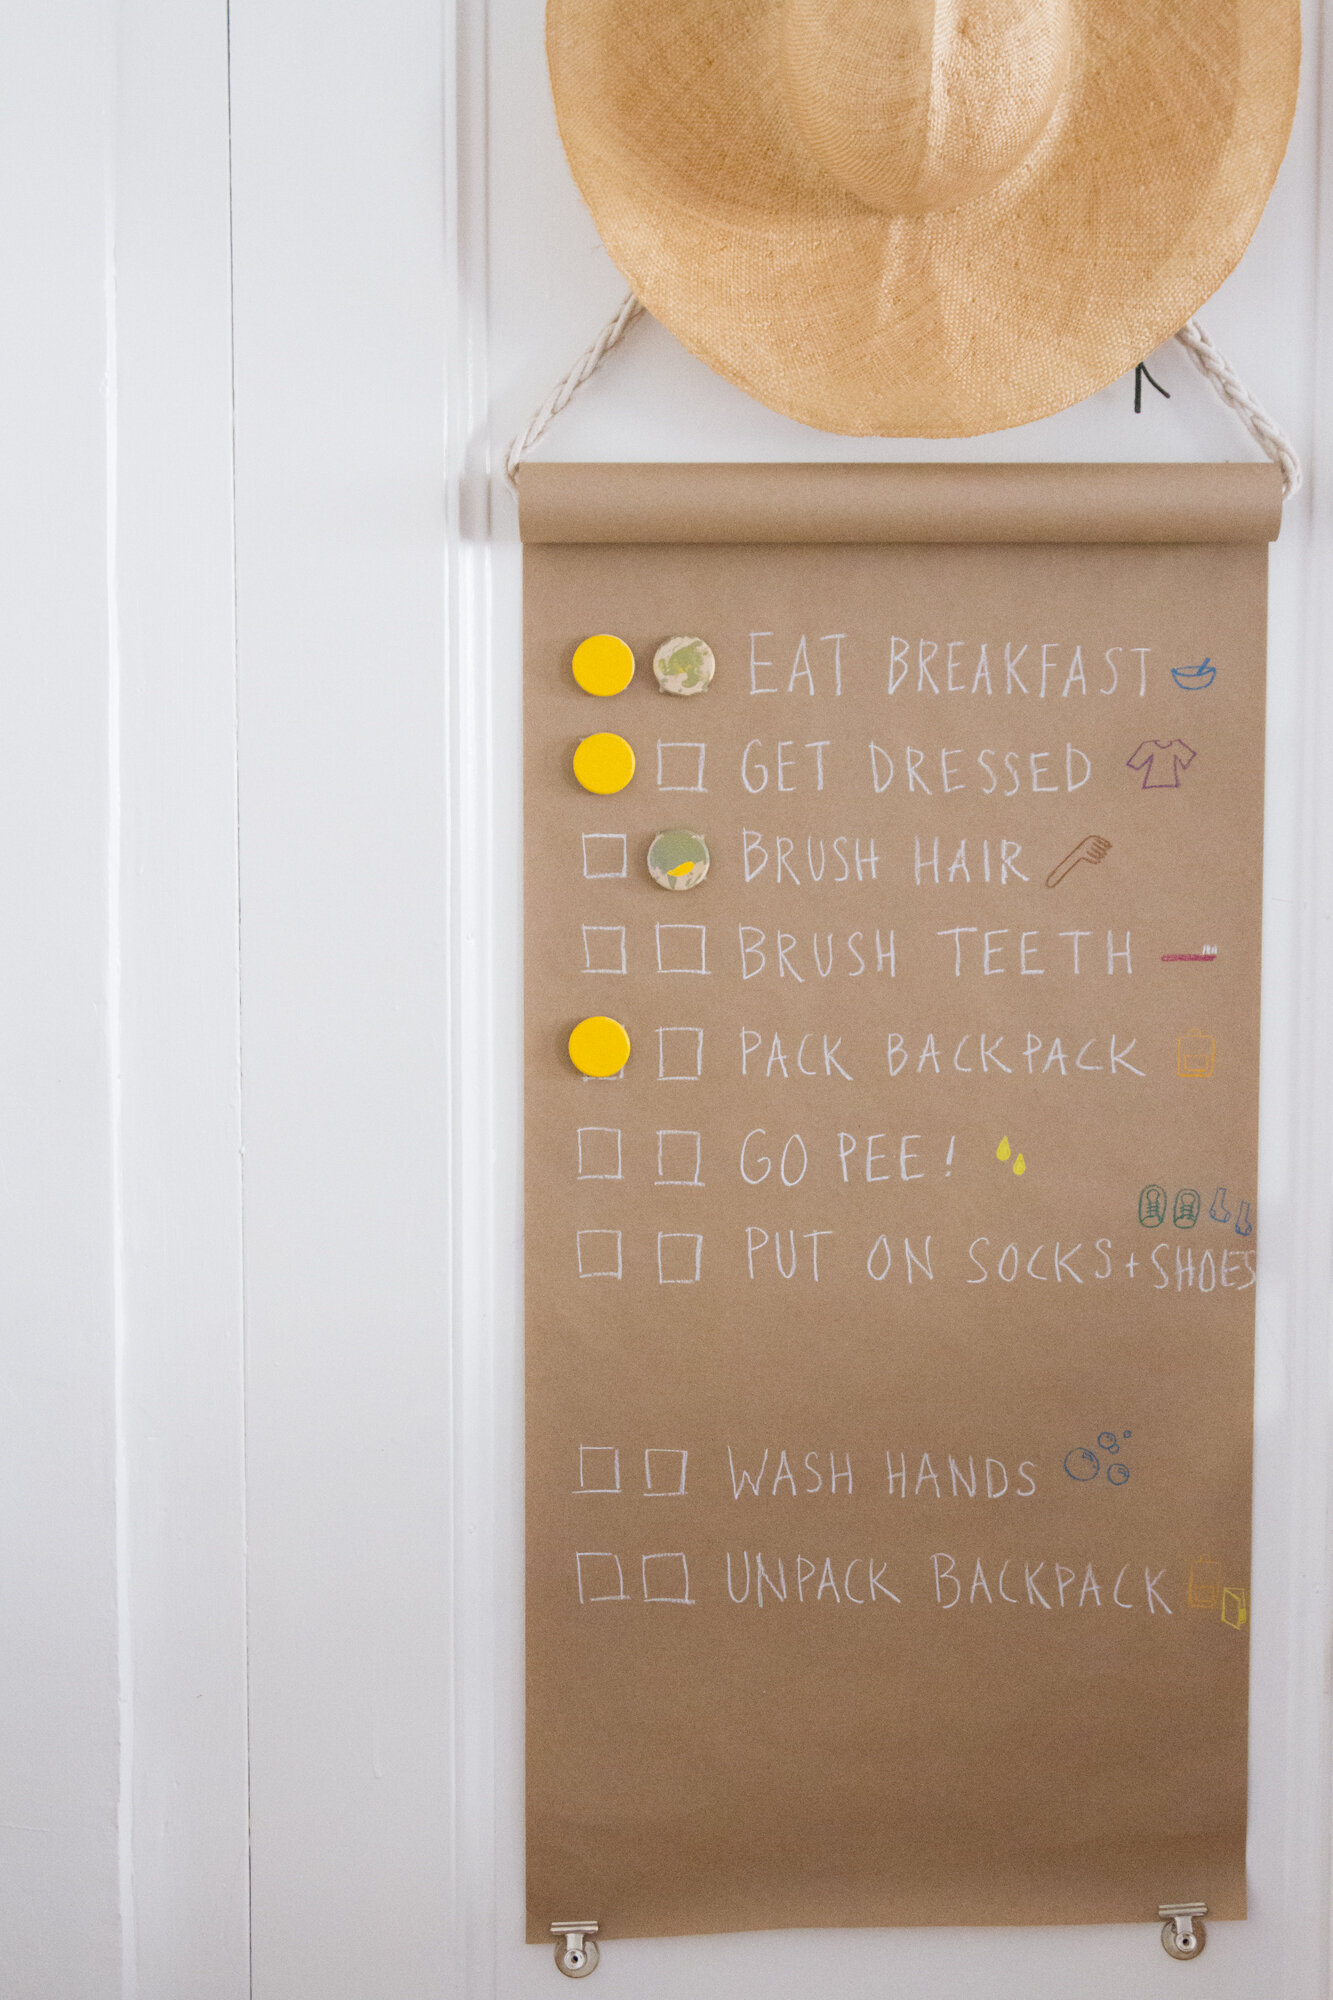 EAT BREAKFAST
GET DRESSED
BRUSH HAIR
BRUSH TEETH
PACK BACKPACK
GO PEE!
PUT ON SOCKS + SHOES
WASH HANDS
UNPACK BACKPACK